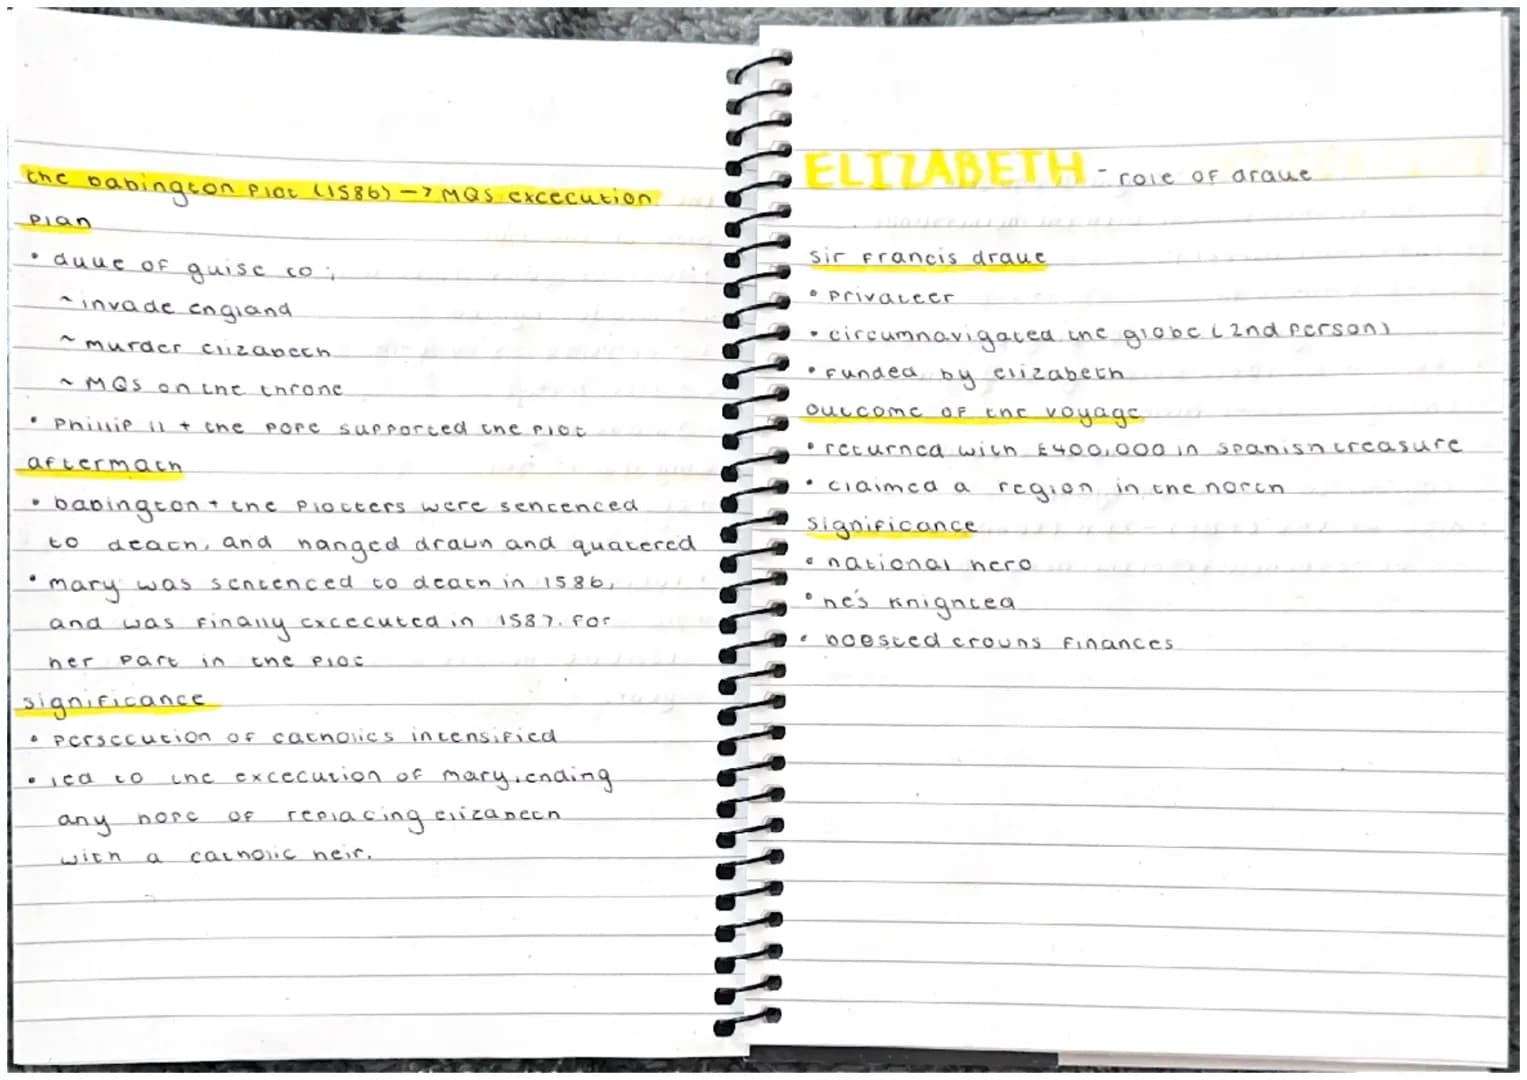 the babington plot (1586) → MQS excecution
plan
• duke of guise to;
~ invade england
~ murder elizabeth
~ MQS on the throne
• phillip II + the pope supported the plot
aftermath
• babington + the plotters were sentenced
to death, and hanged drawn and quatered
• mary was sentenced to death in 1586,
and was finally excecuted in 1587. for
her part in the plot
significance
• persecution of catholics intensified
• led to the excecution of mary, ending
any hope of replacing elizabeth
with a catholic heir.
ELIZABETH - role of drake
sir francis drake
• privateer
• circumnavigated the globe (2nd person)
• funded by elizabeth
outcome of the voyage
• returned with £400,000 in spanish treasure
• claimed a region in the north
significance
• national hero
• he's knighted
• boosted crowns finances